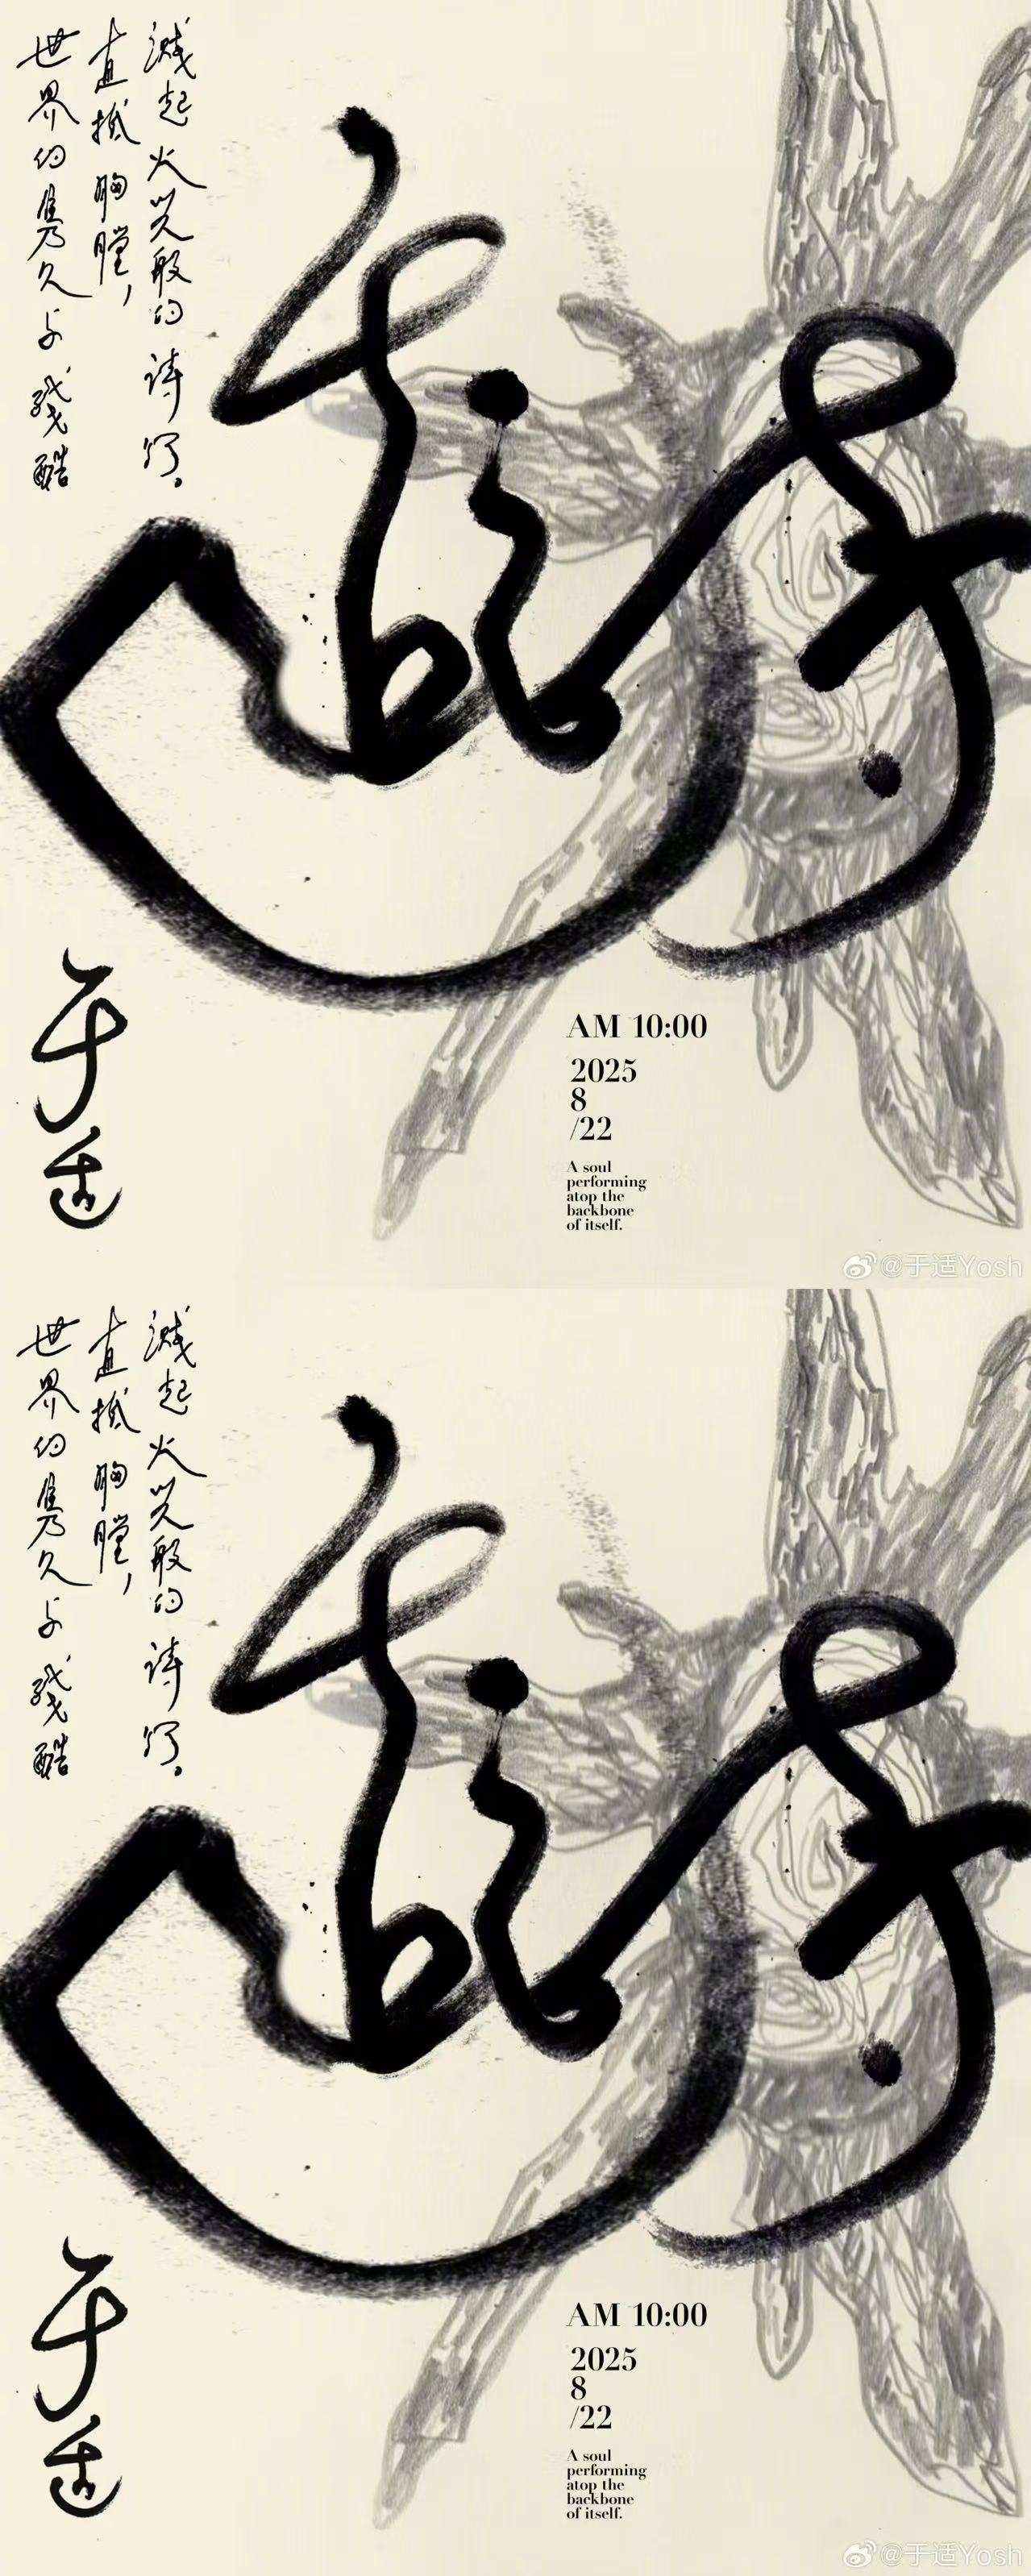 世界的隽久与残酷
直抵胸膛，
溅起火光般的诗行。
于适
AM 10:00
2025
8
/22
A soul
performing
atop the
backbone
of itself.
@于适Yosh
世界的隽久与残酷
直抵胸膛，
溅起火光般的诗行。
于适
AM 10:00
2025
8
/22
A soul
performing
atop the
backbone
of itself.
@于适Yosh